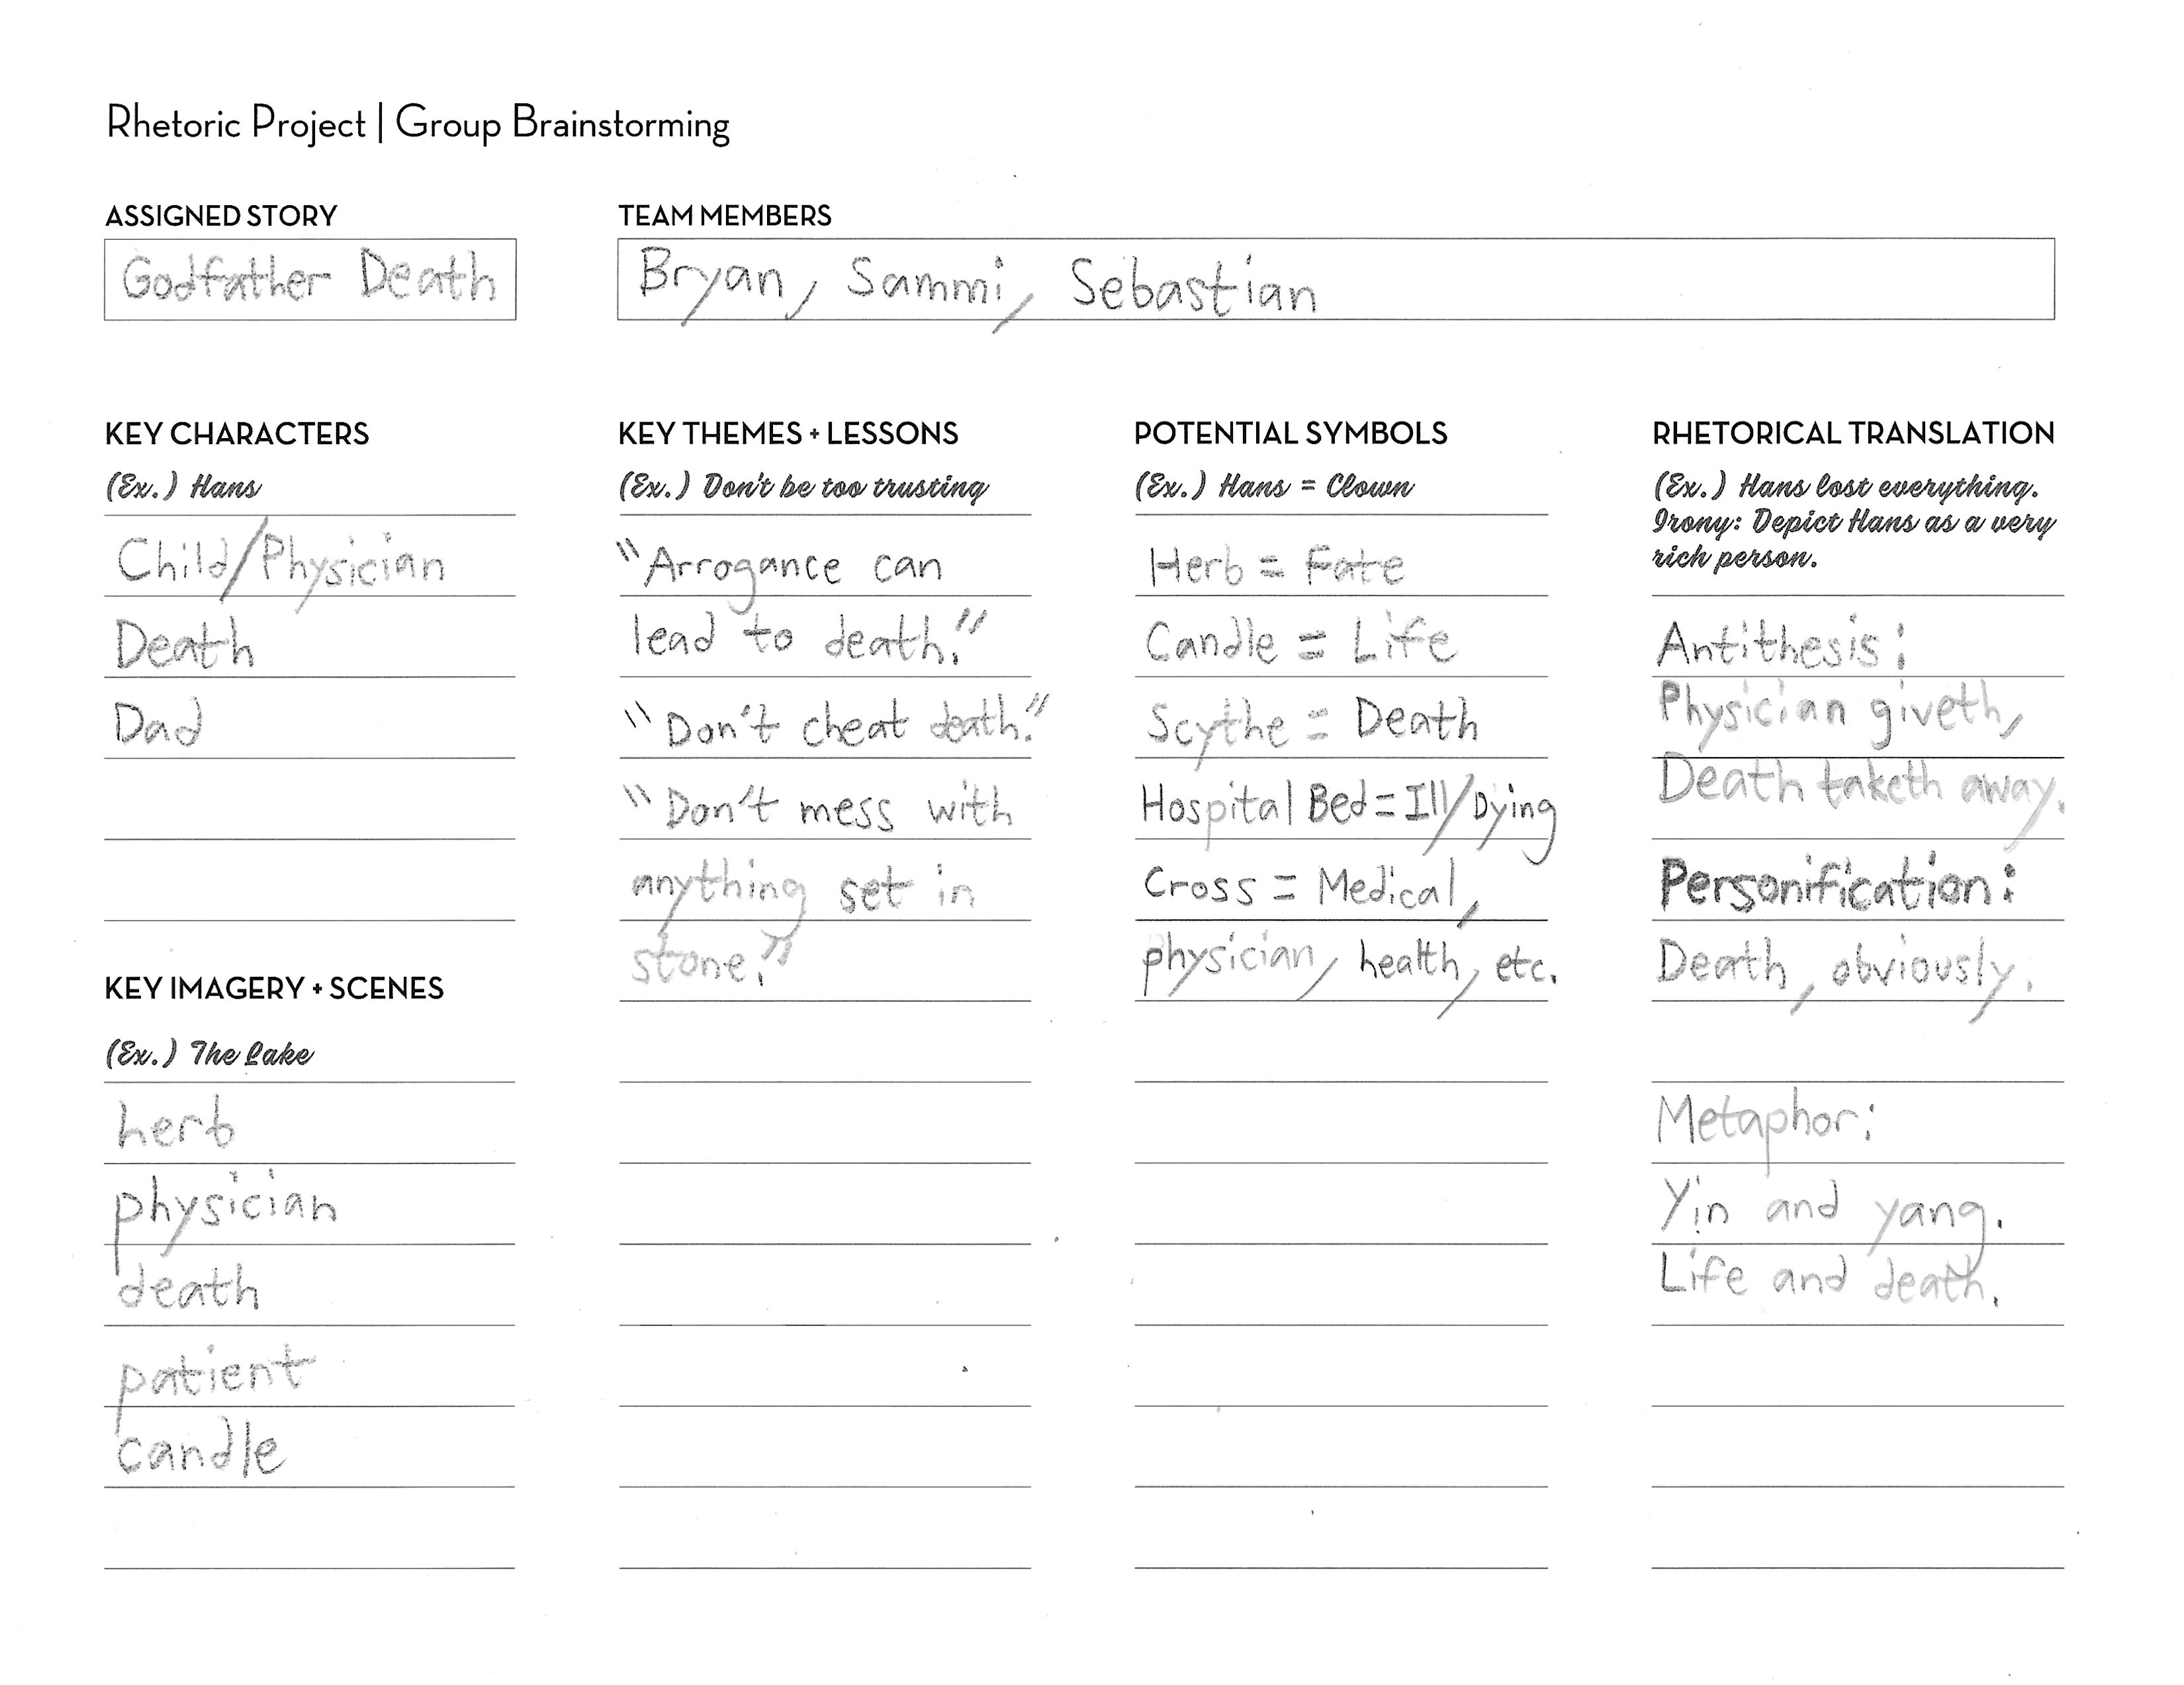 Rhetoric Project | Group Brainstorming
ASSIGNED STORY
Godfather Death
TEAM MEMBERS
Bryan, Sammi, Sebastian
KEY CHARACTERS
(Ex.) Hans
Child/Physician
Death
Dad
KEY IMAGERY + SCENES
(Ex.) The Lake
herb
physician
death
patient
candle
KEY THEMES + LESSONS
(Ex.) Don't be too trusting
"Arrogance can
lead to death."
"Don't cheat death."
"Don't mess with
anything set in
stone."
POTENTIAL SYMBOLS
(Ex.) Hans = Clown
Herb = Fate
Candle = Life
Scythe = Death
Hospital Bed = Ill/Dying
Cross = Medical,
physician, health, etc.
RHETORICAL TRANSLATION
(Ex.) Hans lost everything.
Irony: Depict Hans as a very
rich person.
Antithesis:
Physician giveth,
Death taketh away.
Personification:
Death, obviously.
Metaphor:
Yin and yang.
Life and death.